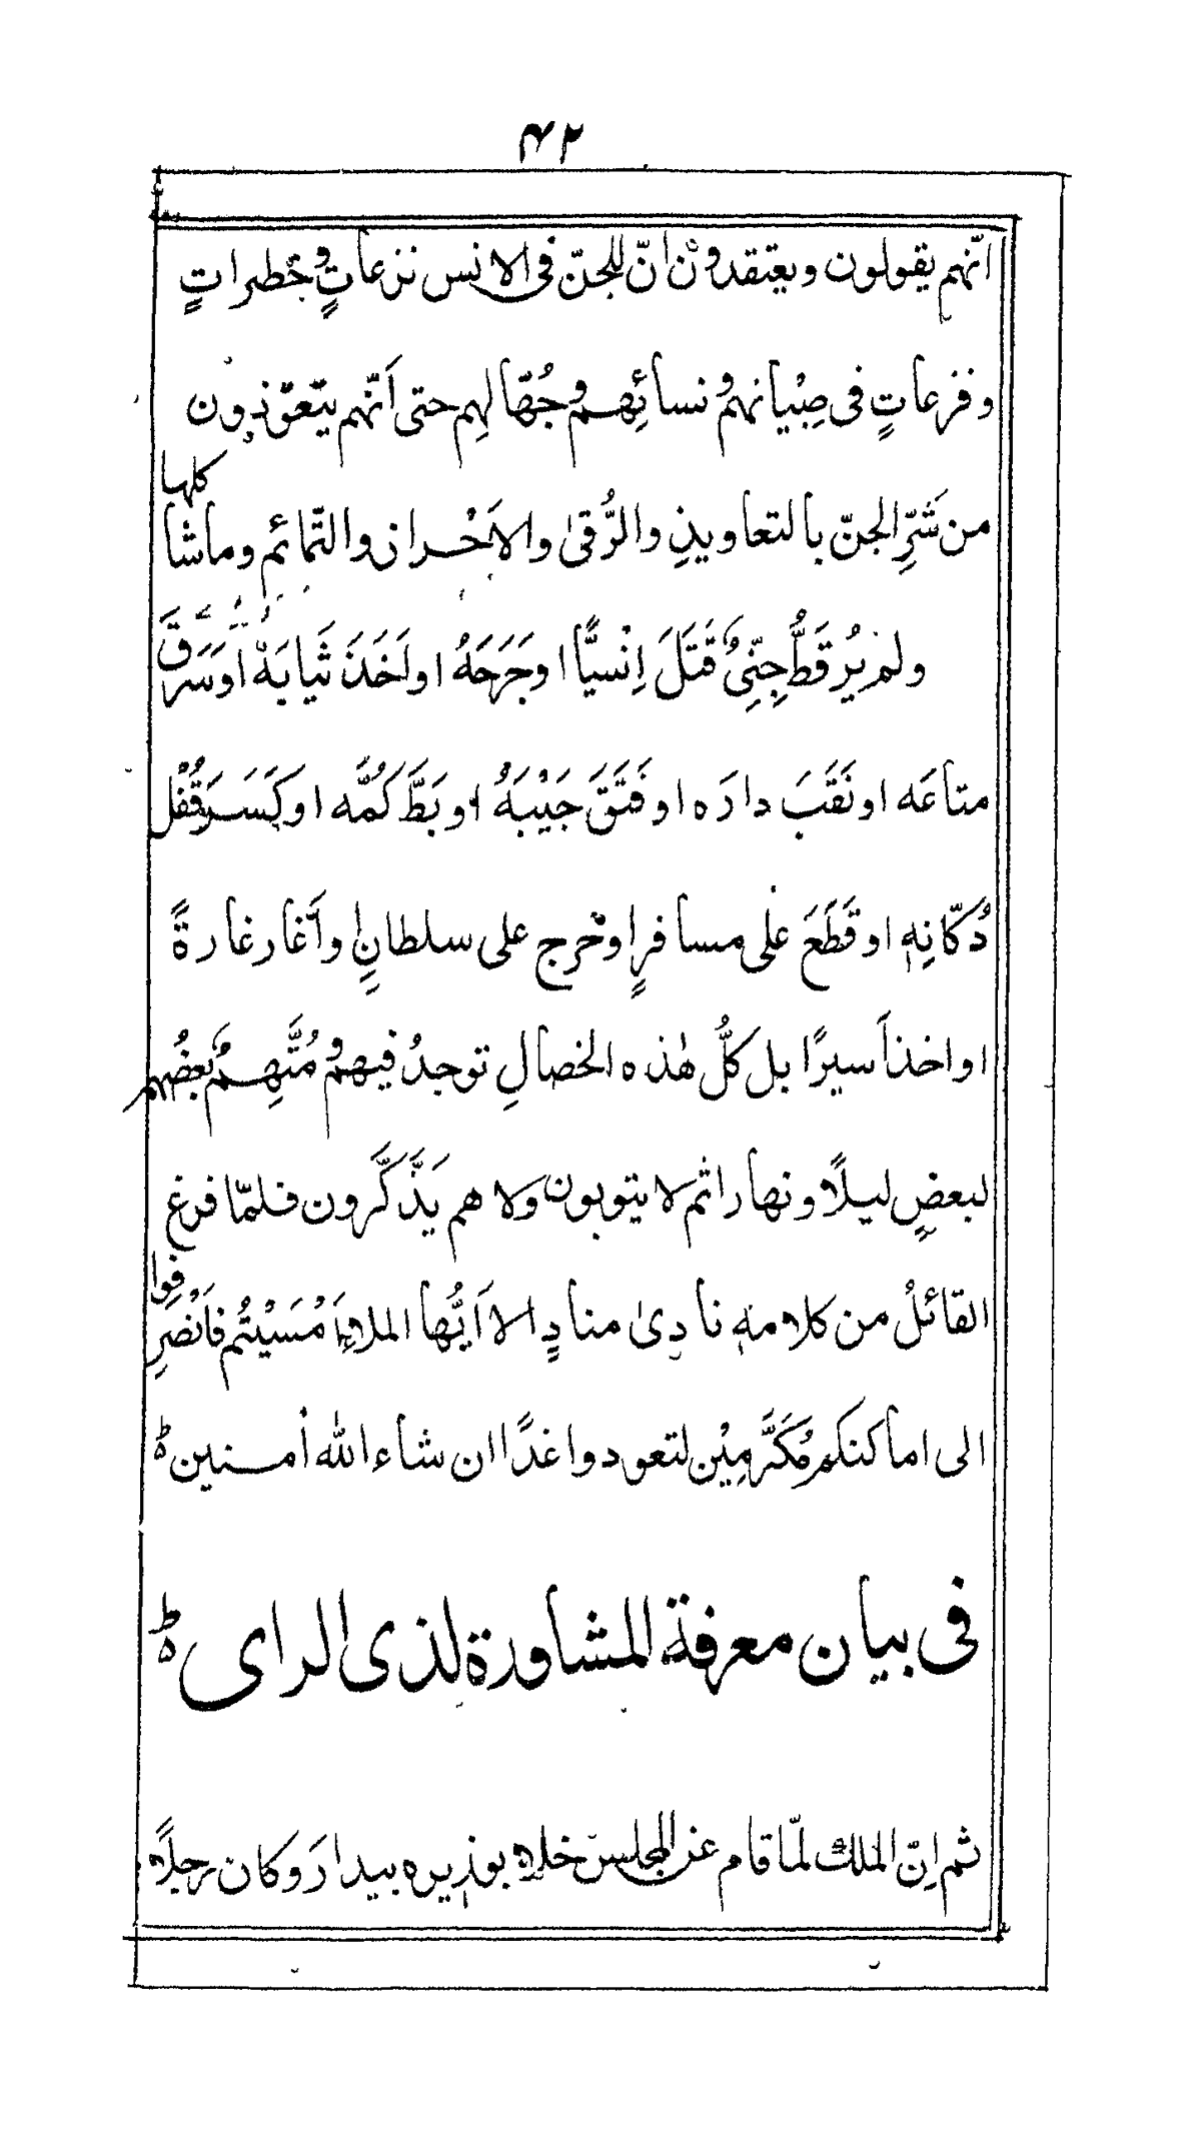 ۴۲
انّهم يقولون ويعتقدون انّ للجنّ فى الانس نزعاتٍ وخطراتٍ
وفزعاتٍ فى صِبْيانهم ونسائِهم وجُهّالهِم حتى اَنّهم يتعوّذون
من شَرِّ الجنّ بالتعاويذِ والرُّقىٰ والاَحْراز والتّمائم وماشاكلها
ولم يُر قَطُّ جِنّىٌ قَتَلَ اِنْسيًّا او جَرَحَهُ او اَخَذَ ثيابَهْ او سَرَقَ
متاعَه او نَقَبَ دارَه او فَتَقَ جَيْبَهُ او بَطَّ كُمَّه او كَسَرَ قُفْل
دُكّانِهٖ او قَطَعَ على مسافرٍ او خرج على سلطانٍ او اَغار غارةً
او اخذ اَسيرًا بل كلُّ هٰذه الخصالِ توجدُ فيهم ومُتَّهِمٌ بعضُهم
لبعضٍ ليلًا ونهارا ثم لا يتوبون ولا هم يَذَّكَّرون فلمّا فرغ
القائلُ من كلامهٖ نادىٰ منادٍ الا اَيُّها الملاءُ اَمْسَيْتُم فَانْصَرِفوا
الى اماكنكم مُكَرَّمِيْن لتعودوا غدًا ان شاء الله اٰمنين ۃ
فى بيان معرفة المشاورة لذى الراى ۃ
ثم اِنّ الملك لمّا قام عن المجلس خلاٖ بوزيره بيدار وكان رجلاً